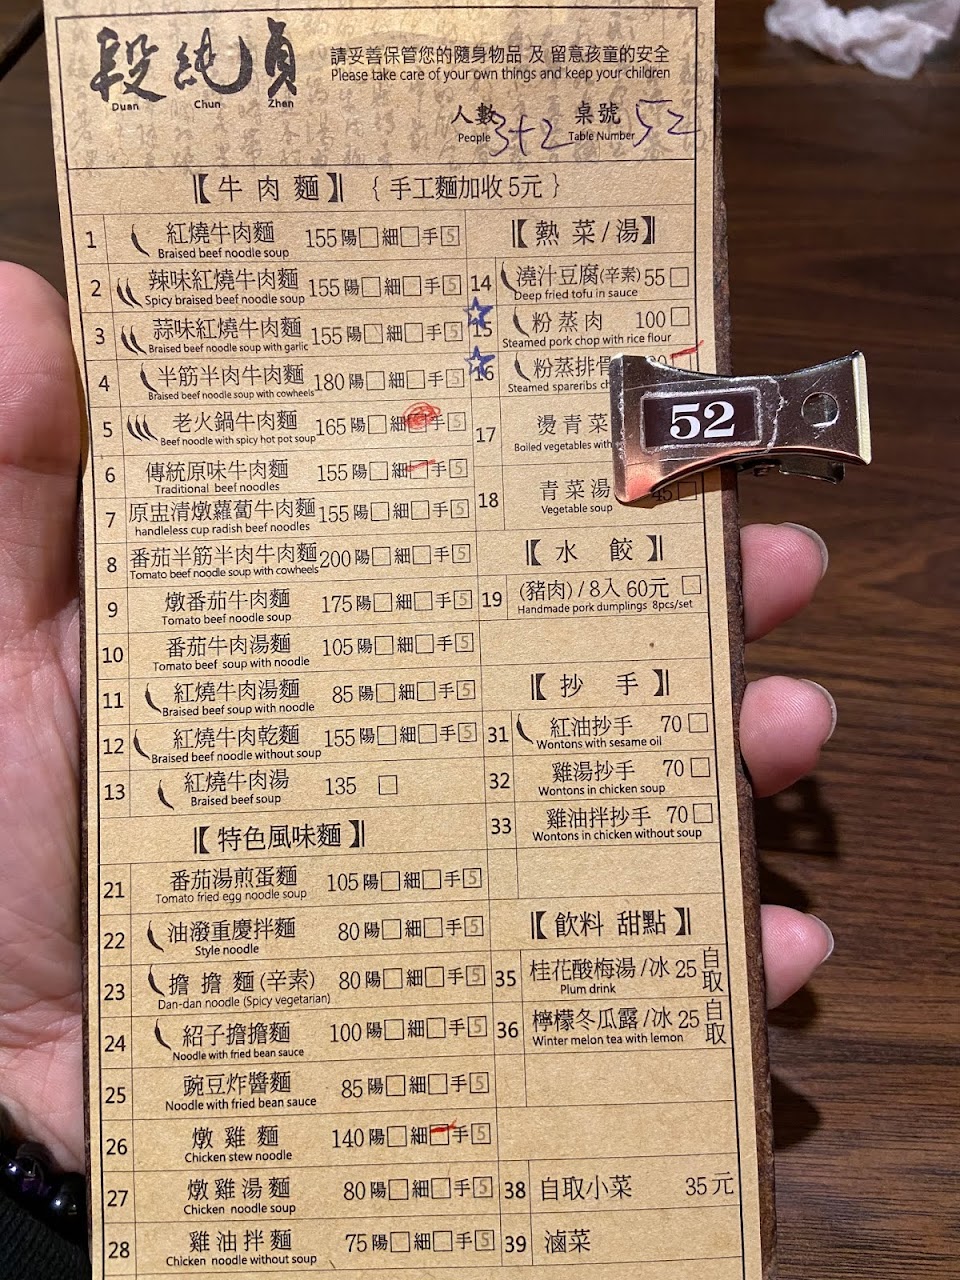 段純貞
Duan Chun Zhen
請妥善保管您的隨身物品 及 留意孩童的安全
Please take care of your own things and keep your children
人數 3+2 桌號 52
People Table Number
【牛肉麵】 { 手工麵加收 5元 }
1 紅燒牛肉麵 155 陽□ 細□ 手5
Braised beef noodle soup
2 辣味紅燒牛肉麵 155 陽□ 細□ 手5
Spicy braised beef noodle soup
3 蒜味紅燒牛肉麵 155 陽□ 細□ 手5
Braised beef noodle soup with garlic
4 半筋半肉牛肉麵 180 陽□ 細□ 手5
Braised beef noodle soup with cowheels
5 老火鍋牛肉麵 165 陽□ 細□ 手5
Beef noodle with spicy hot pot soup
6 傳統原味牛肉麵 155 陽□ 細□ 手5
Traditional beef noodles
7 原盅清燉蘿蔔牛肉麵 155 陽□ 細□ 手5
handleless cup radish beef noodles
8 番茄半筋半肉牛肉麵 200 陽□ 細□ 手5
Tomato beef noodle soup with cowheels
9 燉番茄牛肉麵 175 陽□ 細□ 手5
Tomato beef noodle soup
10 番茄牛肉湯麵 105 陽□ 細□ 手5
Tomato beef soup with noodle
11 紅燒牛肉湯麵 85 陽□ 細□ 手5
Braised beef soup with noodle
12 紅燒牛肉乾麵 155 陽□ 細□ 手5
Braised beef noodle without soup
13 紅燒牛肉湯 135 □
Braised beef soup
【特色風味麵】
21 番茄湯煎蛋麵 105 陽□ 細□ 手5
Tomato fried egg noodle soup
22 油潑重慶拌麵 80 陽□ 細□ 手5
Style noodle
23 擔擔麵(辛素) 80 陽□ 細□ 手5
Dan-dan noodle (Spicy vegetarian)
24 紹子擔擔麵 100 陽□ 細□ 手5
Noodle with fried bean sauce
25 豌豆炸醬麵 85 陽□ 細□ 手5
Noodle with fried bean sauce
26 燉雞麵 140 陽□ 細□ 手5
Chicken stew noodle
27 燉雞湯麵 80 陽□ 細□ 手5
Chicken noodle soup
28 雞油拌麵 75 陽□ 細□ 手5
Chicken noodle without soup
【熱菜/湯】
14 澆汁豆腐(辛素) 55 □
Deep fried tofu in sauce
15 粉蒸肉 100 □
Steamed pork chop with rice flour
16 粉蒸排骨
Steamed spareribs
17 燙青菜
Boiled vegetables with
18 青菜湯 45 □
Vegetable soup
52
【水餃】
19 (豬肉) / 8入 60元 □
Handmade pork dumplings 8pcs/set
【抄手】
31 紅油抄手 70 □
Wontons with sesame oil
32 雞湯抄手 70 □
Wontons in chicken soup
33 雞油拌抄手 70 □
Wontons in chicken without soup
【飲料 甜點】
35 桂花酸梅湯/冰 25 自取
Plum drink
36 檸檬冬瓜露/冰 25 自取
Winter melon tea with lemon
38 自取小菜 35元
39 滷菜